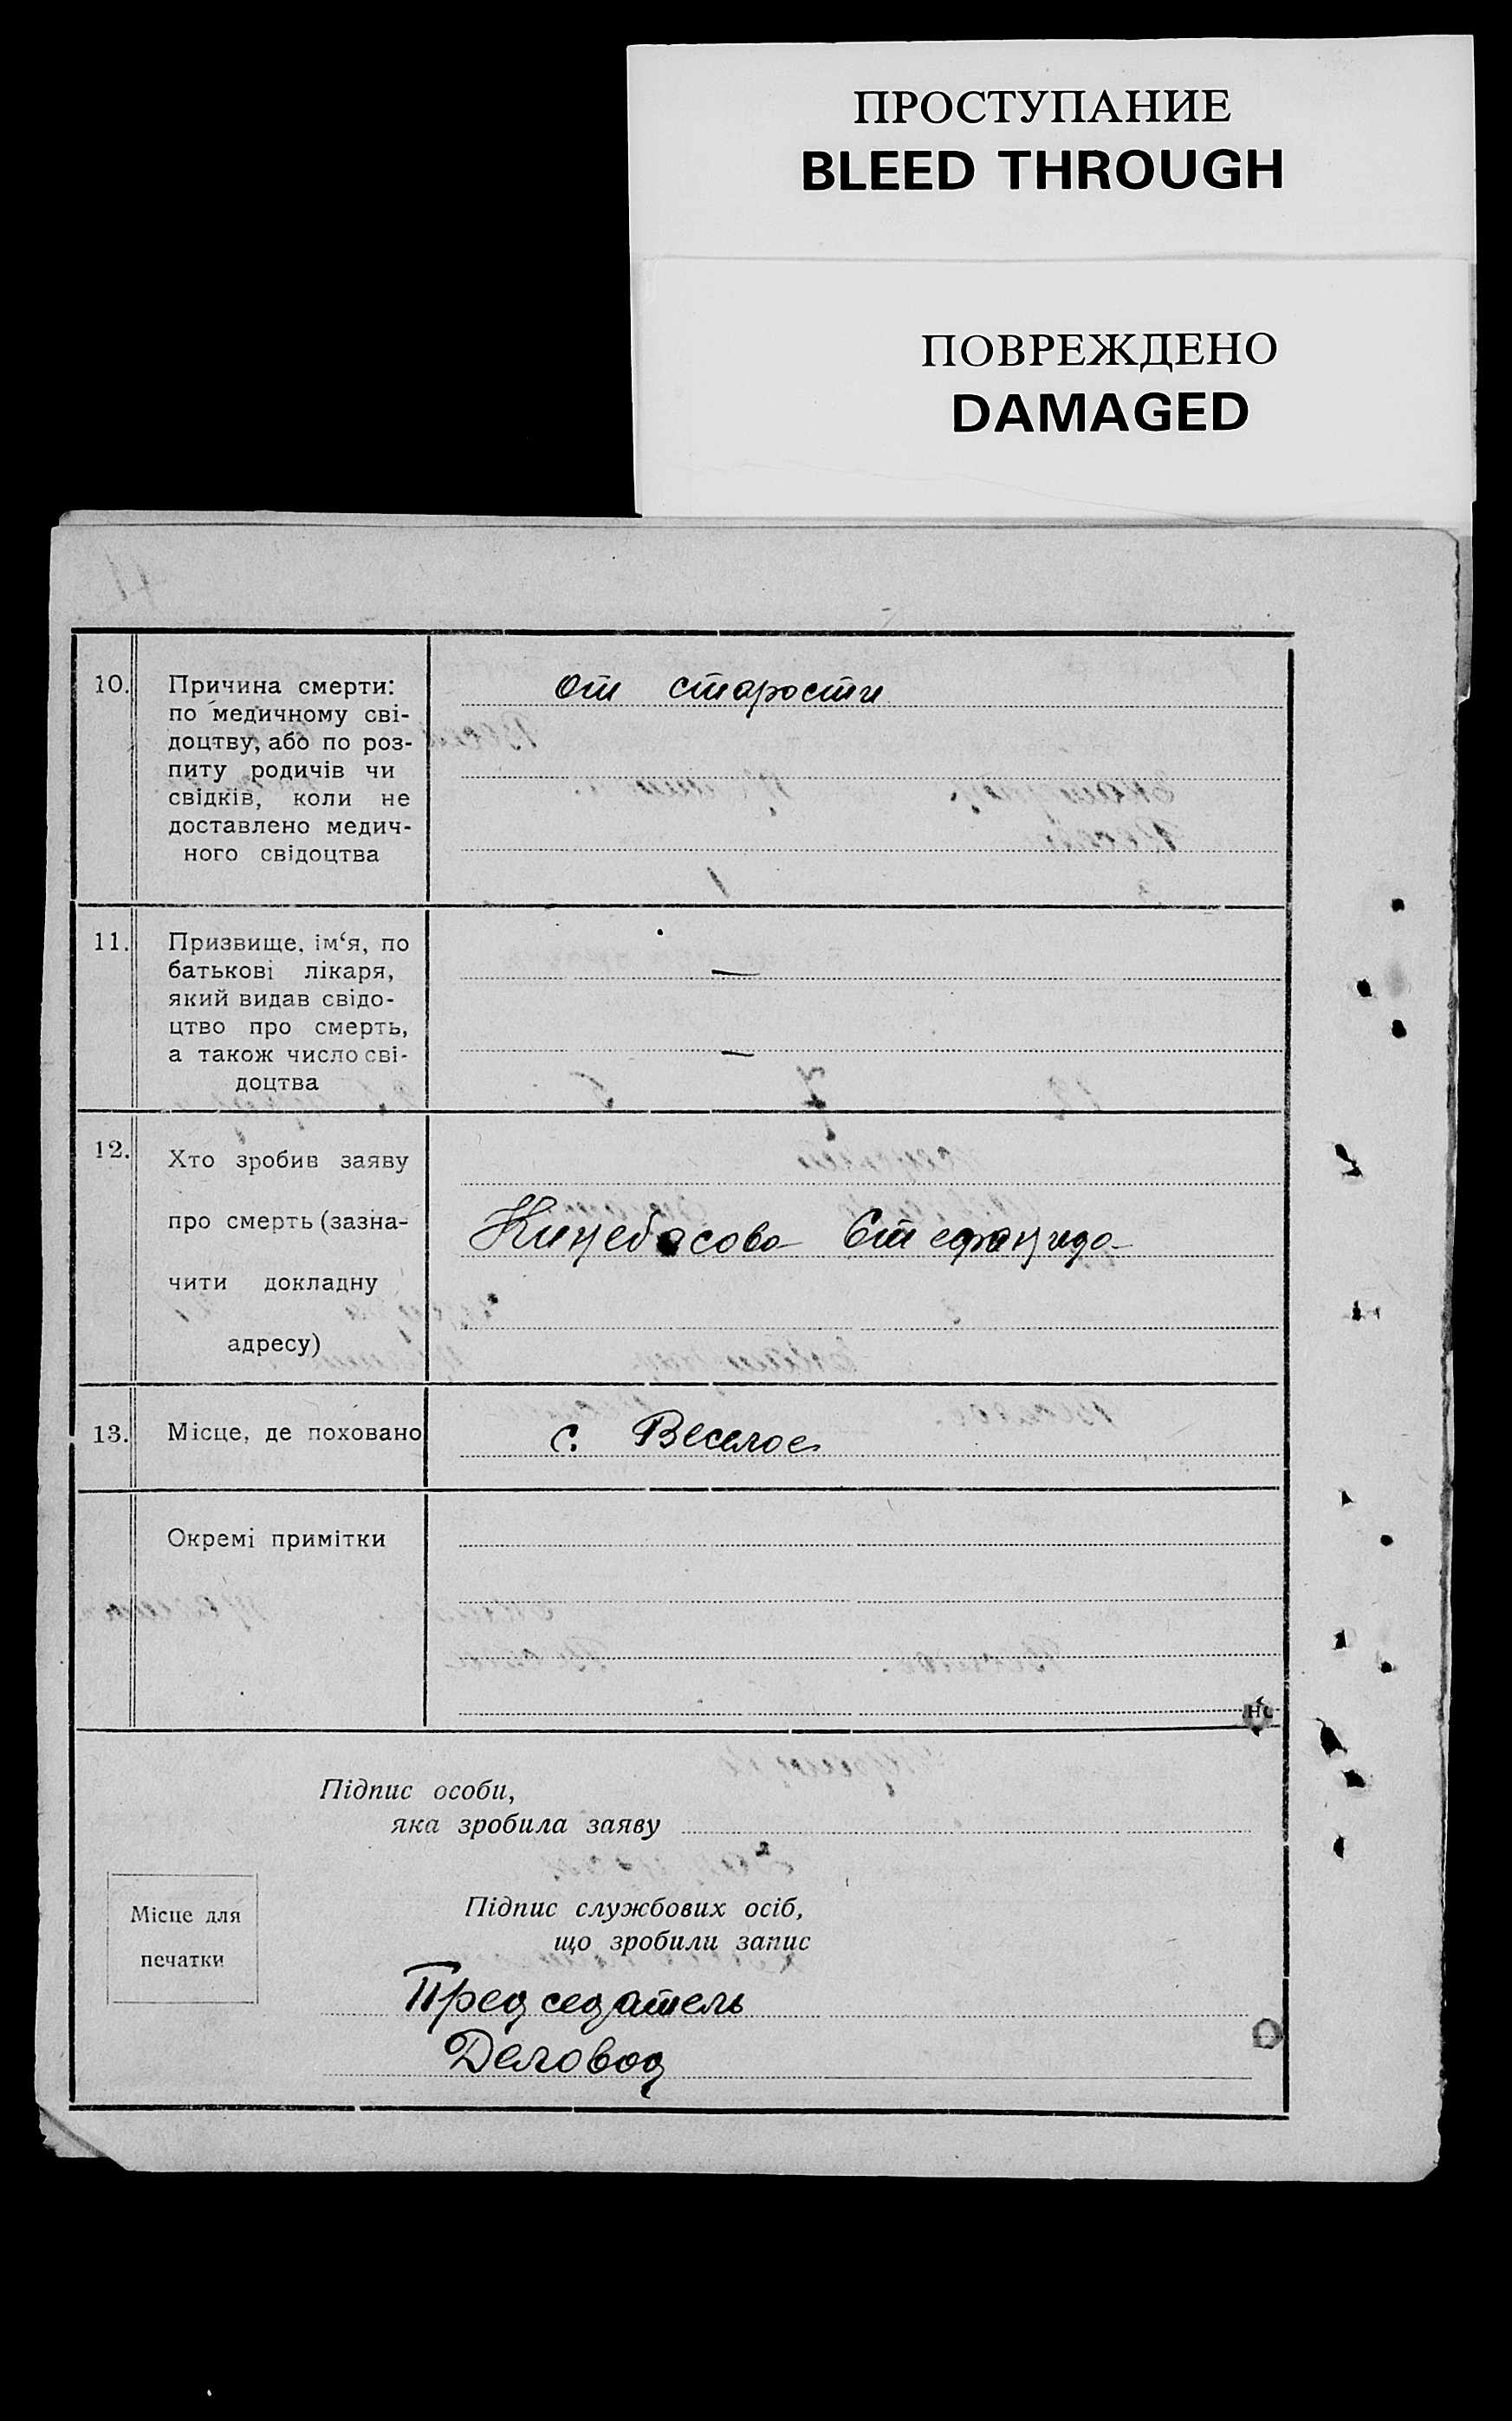 ПРОСТУПАНИЕ
BLEED THROUGH
ПОВРЕЖДЕНО
DAMAGED
10. Причина смерти:
по медичному сві-
доцтву, або по роз-
питу родичів чи
свідків, коли не
доставлено медич-
ного свідоцтва
от старости
11. Призвище, ім‘я, по
батькові лікаря,
який видав свідо-
цтво про смерть,
а також число сві-
доцтва
—
—
12. Хто зробив заяву
про смерть (зазна-
чити докладну
адресу)
Кицебасова Стефанида
13. Місце, де поховано
с. Веселое
Окремі примітки
Підпис особи,
яка зробила заяву
Місце для
печатки
Підпис службових осіб,
що зробили запис
Председатель
Деловод